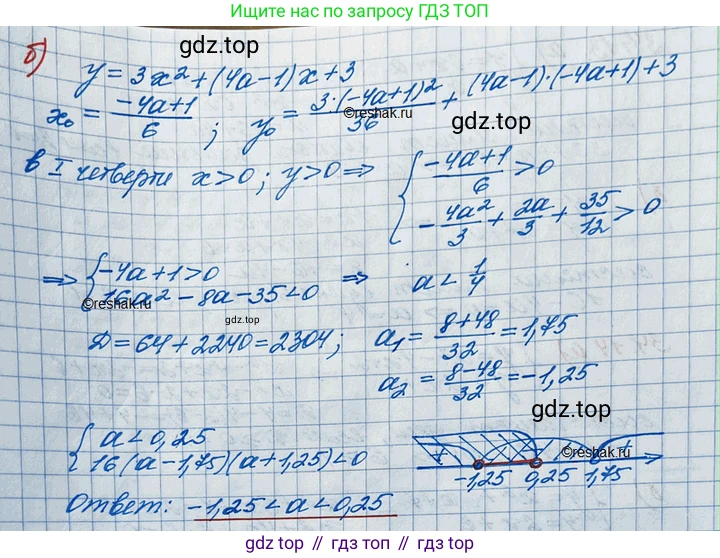 Ищите нас по запросу ГДЗ ТОП
б)
gdz.top
y = 3x² + (4a-1)x + 3
x₀ = (-4a+1)/6 ; y₀ = 3·(-4a+1)²/36 + (4a-1)·(-4a+1) + 3
©reshak.ru
gdz.top
©reshak.ru
в I четверти x>0; y>0 ⇒ { (-4a+1)/6 > 0
-4a²/3 + 2a/3 + 35/12 > 0
⇒ { -4a+1>0
16a² - 8a - 35 < 0 ⇒ a < 1/4
©reshak.ru
gdz.top
Д = 64 + 2240 = 2304; a₁ = (8+48)/32 = 1,75
a₂ = (8-48)/32 = -1,25
gdz.top
{ a < 0,25
16(a-1,75)(a+1,25) < 0
+ - +
©reshak.ru
-1,25 0,25 1,75
Ответ: -1,25 < a < 0,25
gdz.top // гдз.топ // гдз топ